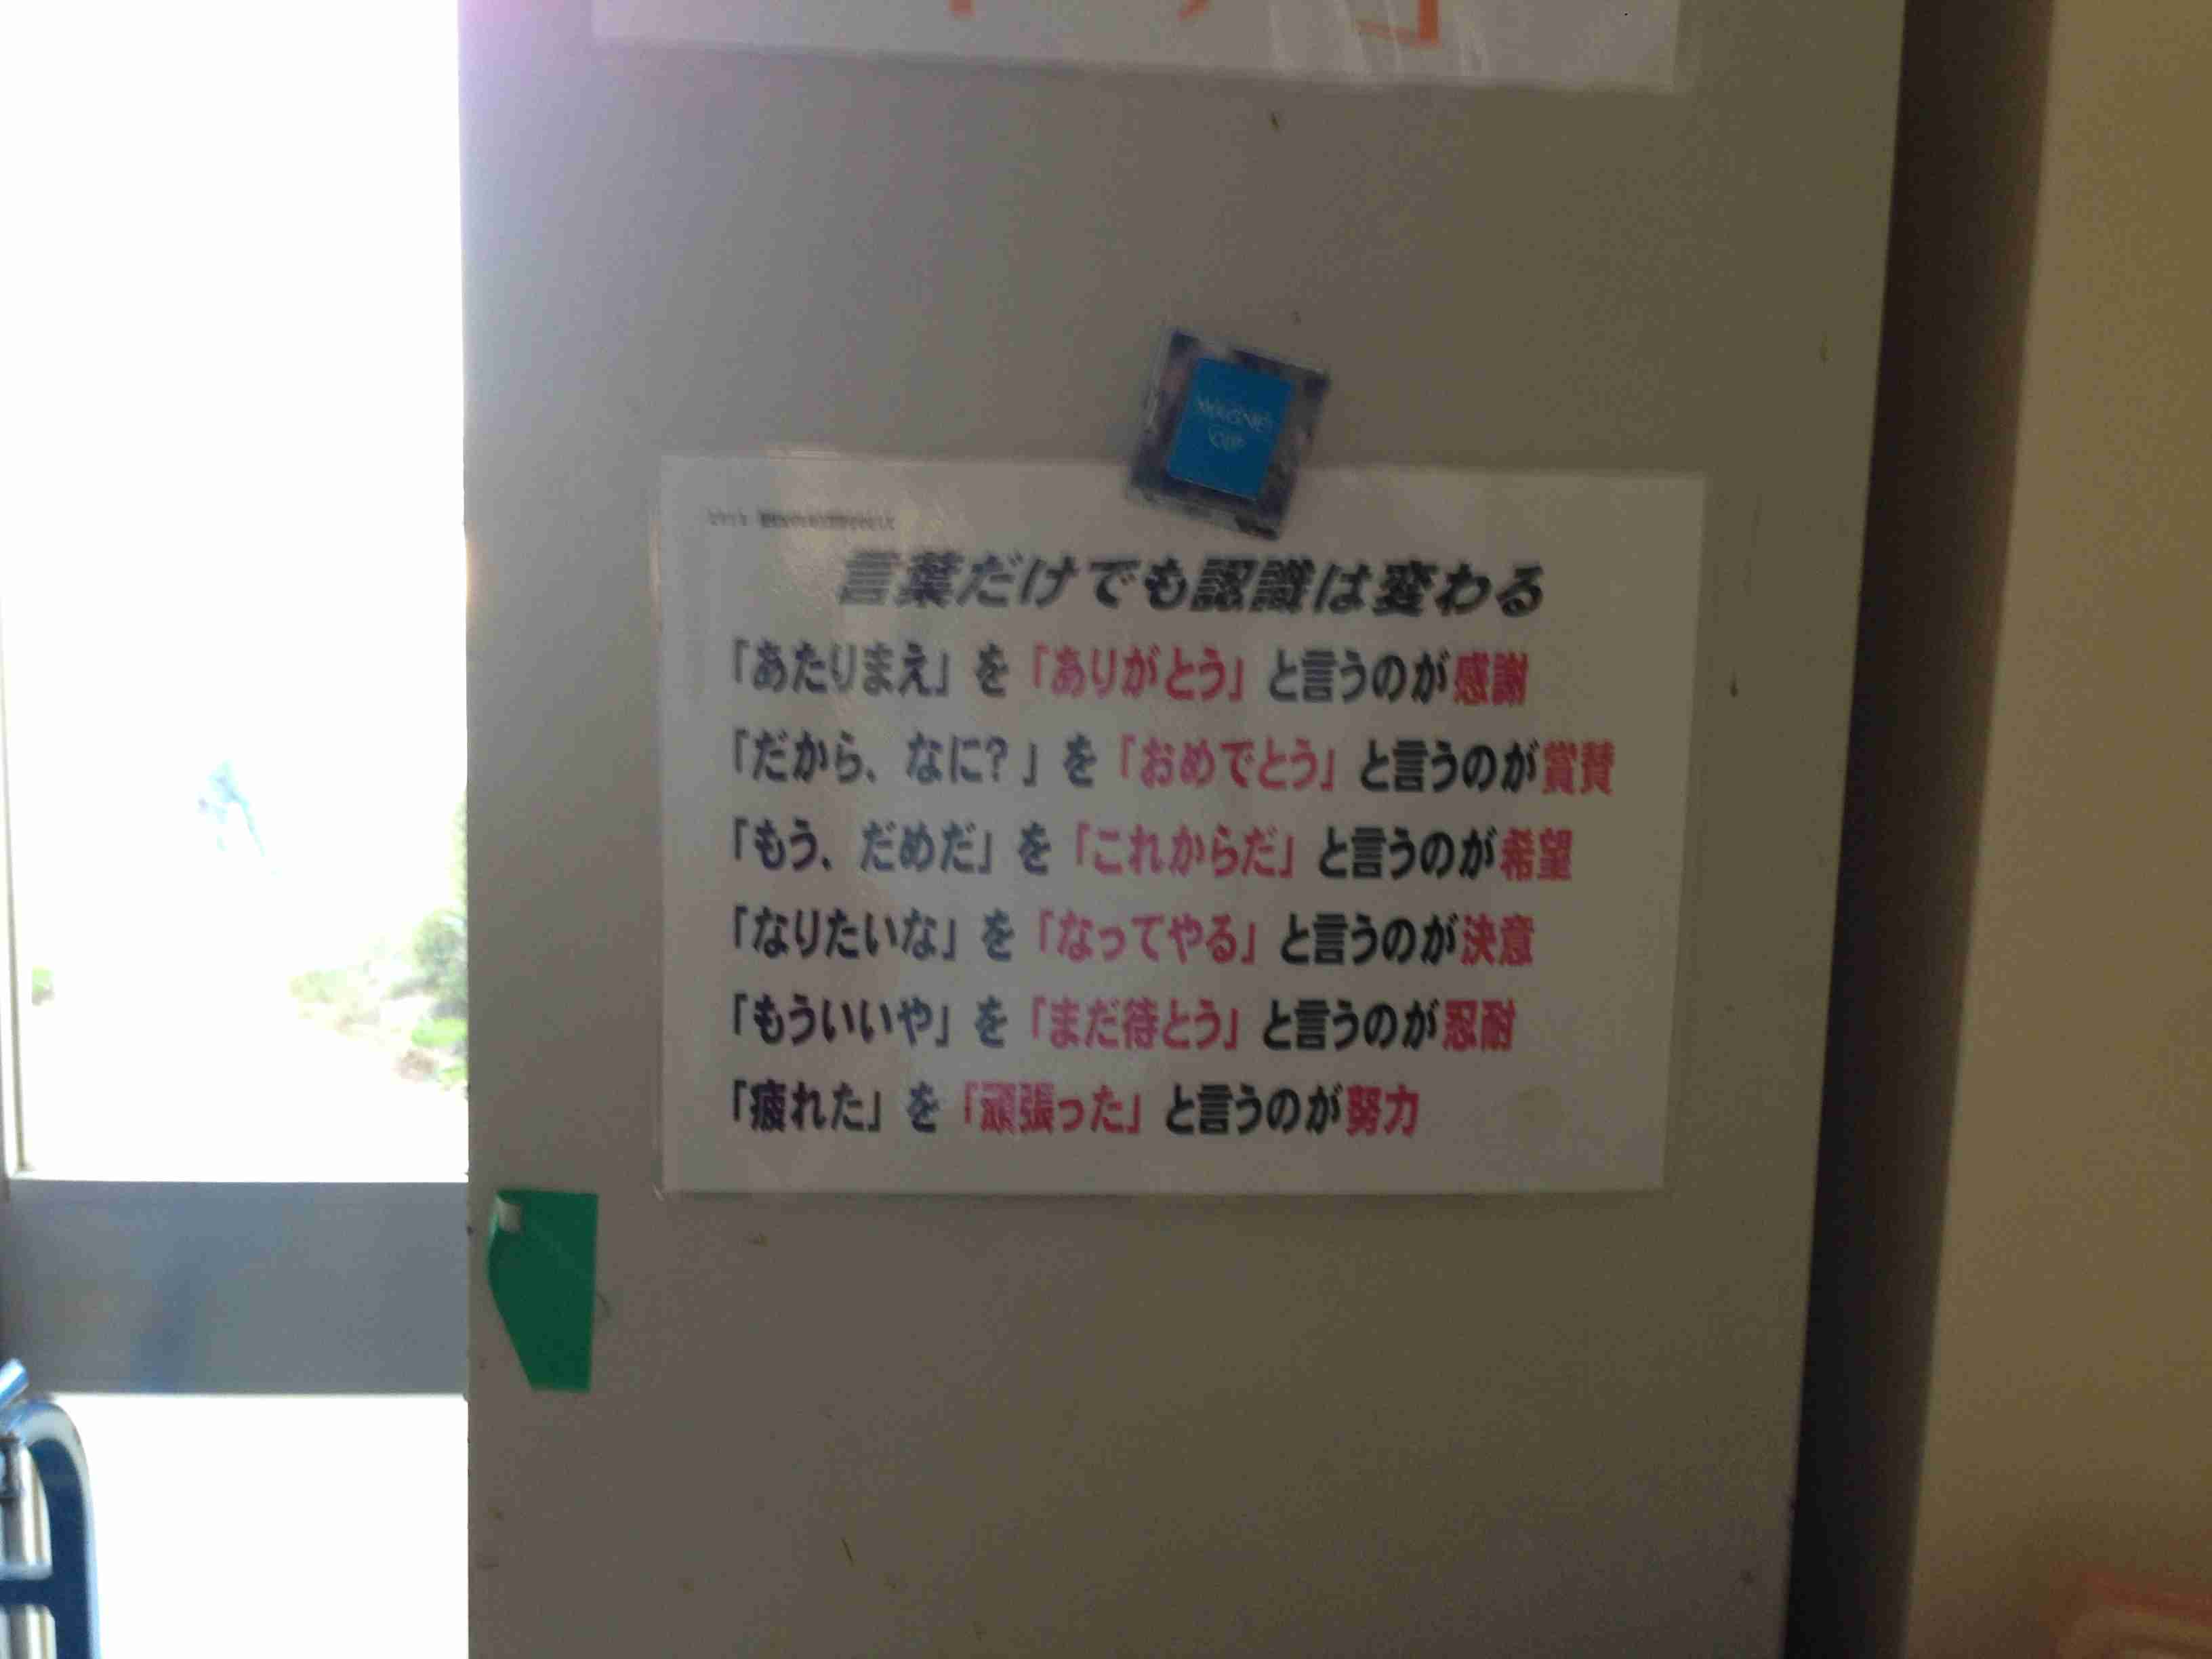 MAGNET
CLIP
言葉だけでも認識は変わる
「あたりまえ」を「ありがとう」と言うのが感謝
「だから、なに?」を「おめでとう」と言うのが賞賛
「もう、だめだ」を「これからだ」と言うのが希望
「なりたいな」を「なってやる」と言うのが決意
「もういいや」を「まだ待とう」と言うのが忍耐
「疲れた」を「頑張った」と言うのが努力